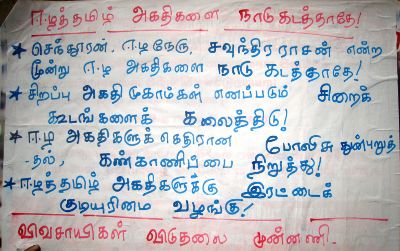 ஈழத்தமிழ் அகதிகளை நாடு கடத்தாதே!
★ செந்தூரன், ஈழ நேரு, சவுந்திர ராசன் என்ற
மூன்று ஈழ அகதிகளை நாடு கடத்தாதே!
★ சிறப்பு அகதி முகாம்கள் எனப்படும் சிறைக்
கூடங்களைக் கலைத்திடு!
★ ஈழ அகதிகளுக் கெதிரான போலிசு துன்புறுத்
-தல், கண்காணிப்பை நிறுத்து!
★ ஈழத்தமிழ் அகதிகளுக்கு இரட்டைக்
குடியுரிமை வழங்கு!
விவசாயிகள் விடுதலை முன்னணி.